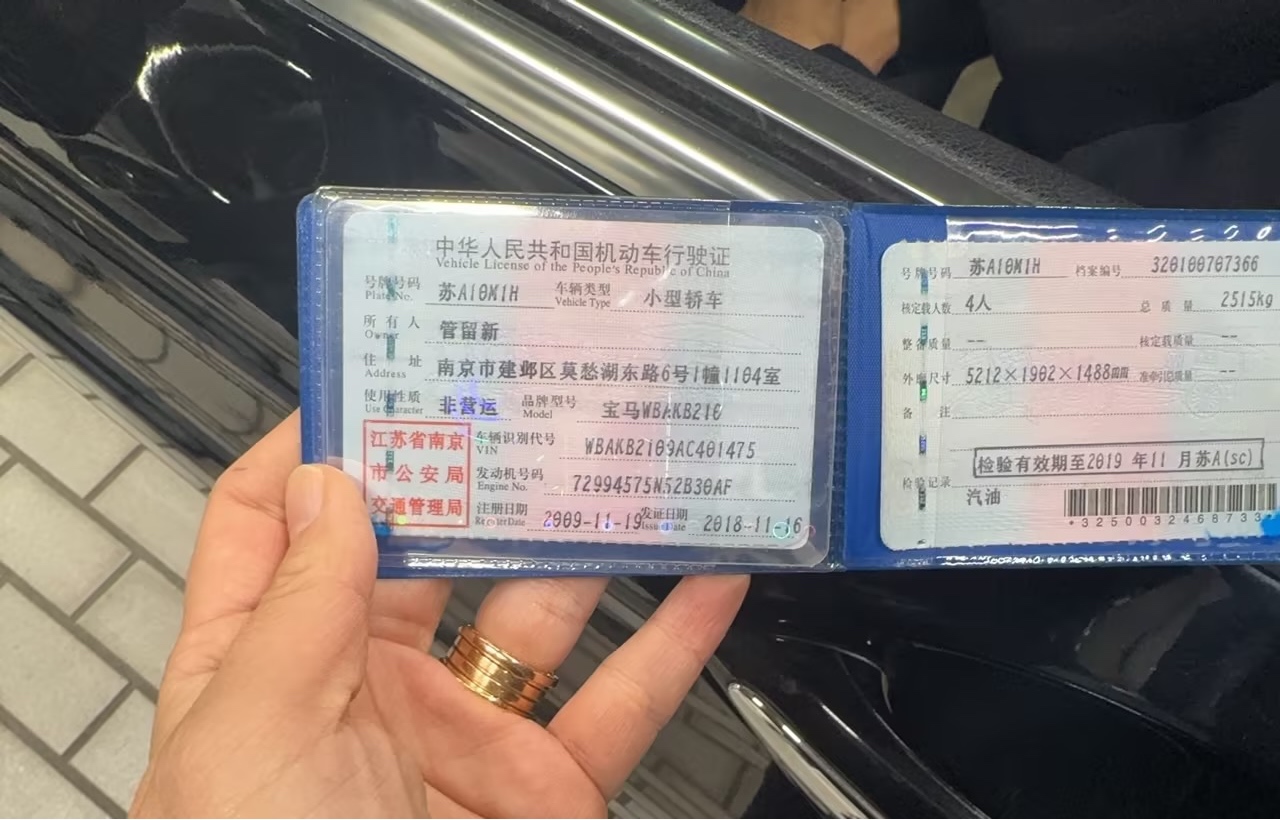 中华人民共和国机动车行驶证
Vehicle License of the People's Republic of China
号牌号码 苏A10M1H 车辆类型 小型轿车
Plate No. Vehicle Type
所有人 管留新
Owner
住址 南京市建邺区莫愁湖东路6号1幢1104室
Address
使用性质 非营运 品牌型号 宝马WBAKB210
Use Character Model
江苏省南京
市公安局
交通管理局
车辆识别代号 WBAKB2109AC401475
VIN
发动机号码 72994575N52B30AF
Engine No.
注册日期 2009-11-19 发证日期 2018-11-16
Register Date Issue Date
号牌号码 苏A10M1H 档案编号 320100707366
核定载人数 4人 总质量 2515kg
整备质量 -- 核定载质量 --
外廓尺寸 5212×1902×1488 准牵引总质量 --
备注
检验有效期至2019 年11 月苏A(sc)
检验记录
汽油